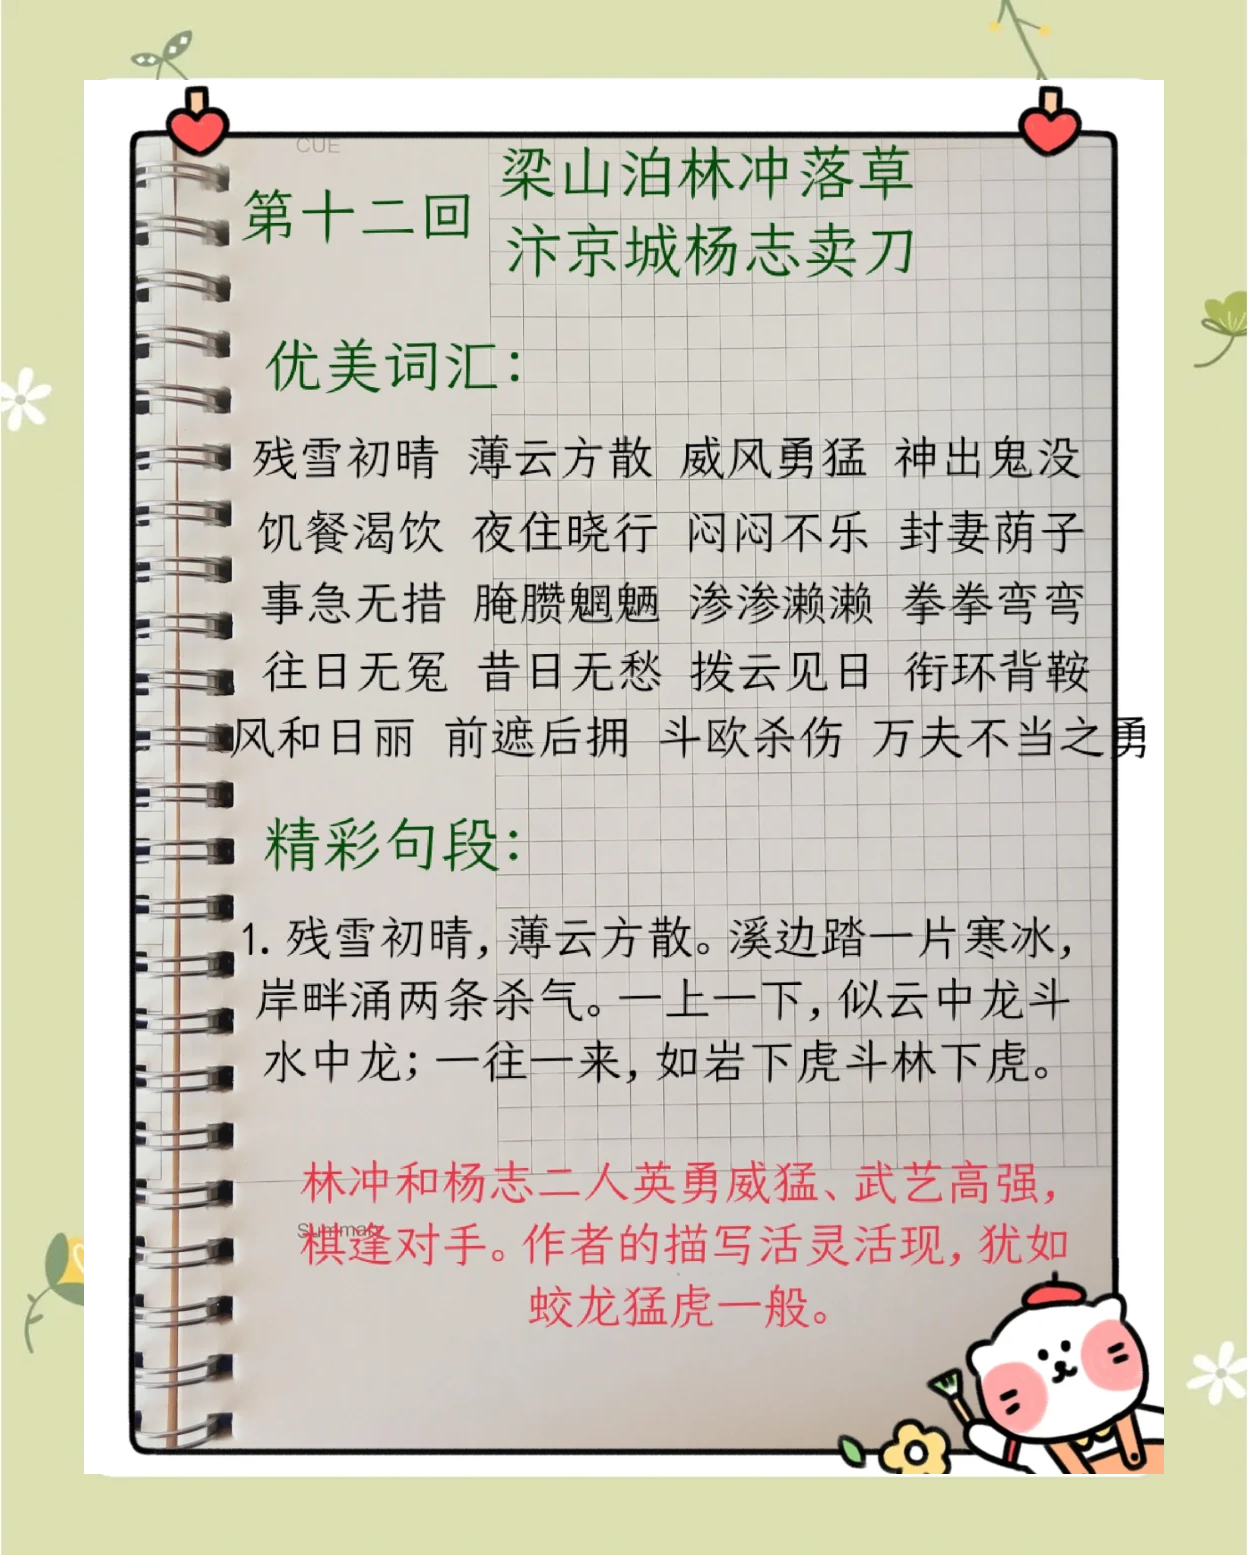 CUE
梁山泊林冲落草
第十二回
汴京城杨志卖刀
优美词汇：
残雪初晴 薄云方散 威风勇猛 神出鬼没
饥餐渴饮 夜住晓行 闷闷不乐 封妻荫子
事急无措 腌臜魍魉 渗渗濑濑 拳拳弯弯
往日无冤 昔日无愁 拨云见日 衔环背鞍
风和日丽 前遮后拥 斗欧杀伤 万夫不当之勇
精彩句段：
1. 残雪初晴，薄云方散。溪边踏一片寒冰，
岸畔涌两条杀气。一上一下，似云中龙斗
水中龙；一往一来，如岩下虎斗林下虎。
林冲和杨志二人英勇威猛、武艺高强，
Summary
棋逢对手。作者的描写活灵活现，犹如
蛟龙猛虎一般。